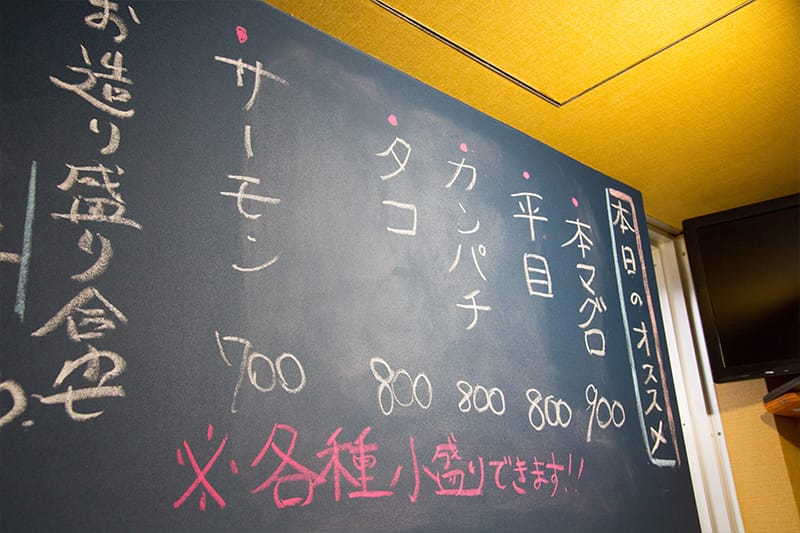 本日のオススメ
・本マグロ 900
・平目 800
・カンパチ 800
・タコ 800
・サーモン 700
お造り盛り合せ
※・各種小盛りできます!!